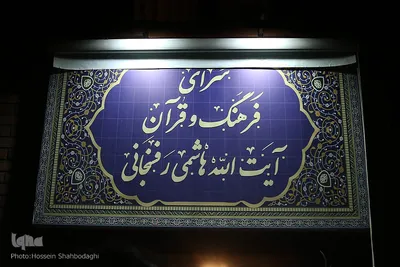 سرای
فرهنگ و قرآن
آیت الله هاشمی رفسنجانی
ایکنا
Photo:Hossein Shahbodaghi